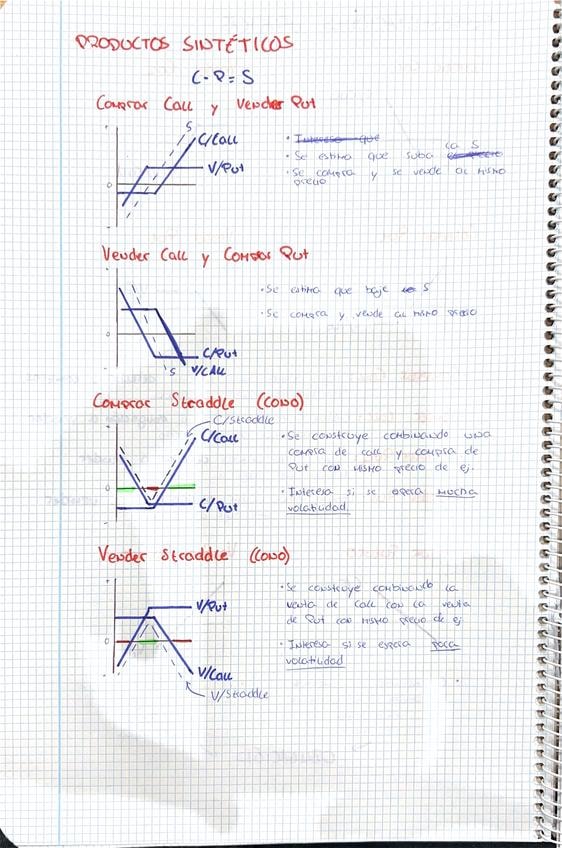 PRODUCTOS SINTÉTICOS
C - P = S
Comprar Call y Vender Put
S
C/Call
V/Put
0
• Interesa que
• Se estima que suba la S
• Se compra y se vende al mismo
precio
Vender Call y Comprar Put
0
C/Put
S
V/CALL
• Se estima que baje S
• Se compra y vende al mismo precio
Comprar Straddle (CONO)
C/Straddle
C/Call
0
C/Put
• Se construye combinando una
compra de call y compra de
Put con mismo precio de ej.
• Interesa si se espera mucha
volatilidad
Vender Straddle (CONO)
V/Put
0
V/Call
V/Straddle
• Se construye combinando la
venta de Call con la venta
de Put con mismo precio de ej
• Interesa si se espera poca
volatilidad